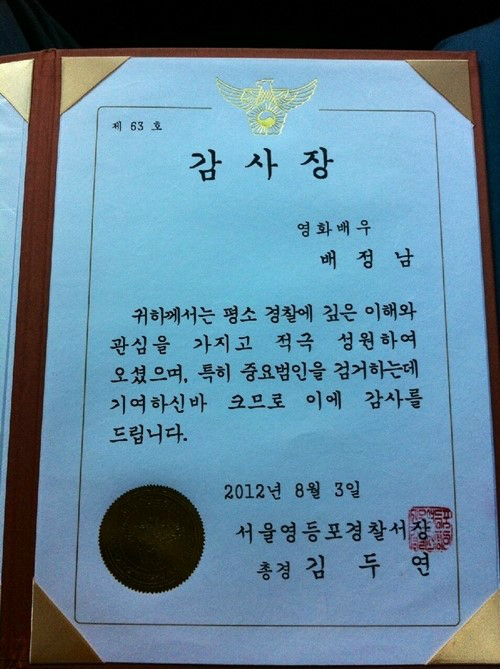 제 63 호
감사장
영화배우
배정남
귀하께서는 평소 경찰에 깊은 이해와
관심을 가지고 적극 성원하여
오셨으며, 특히 중요범인을 검거하는데
기여하신바 크므로 이에 감사를
드립니다.
2012년 8월 3일
서울영등포경찰서장
총경 김두연